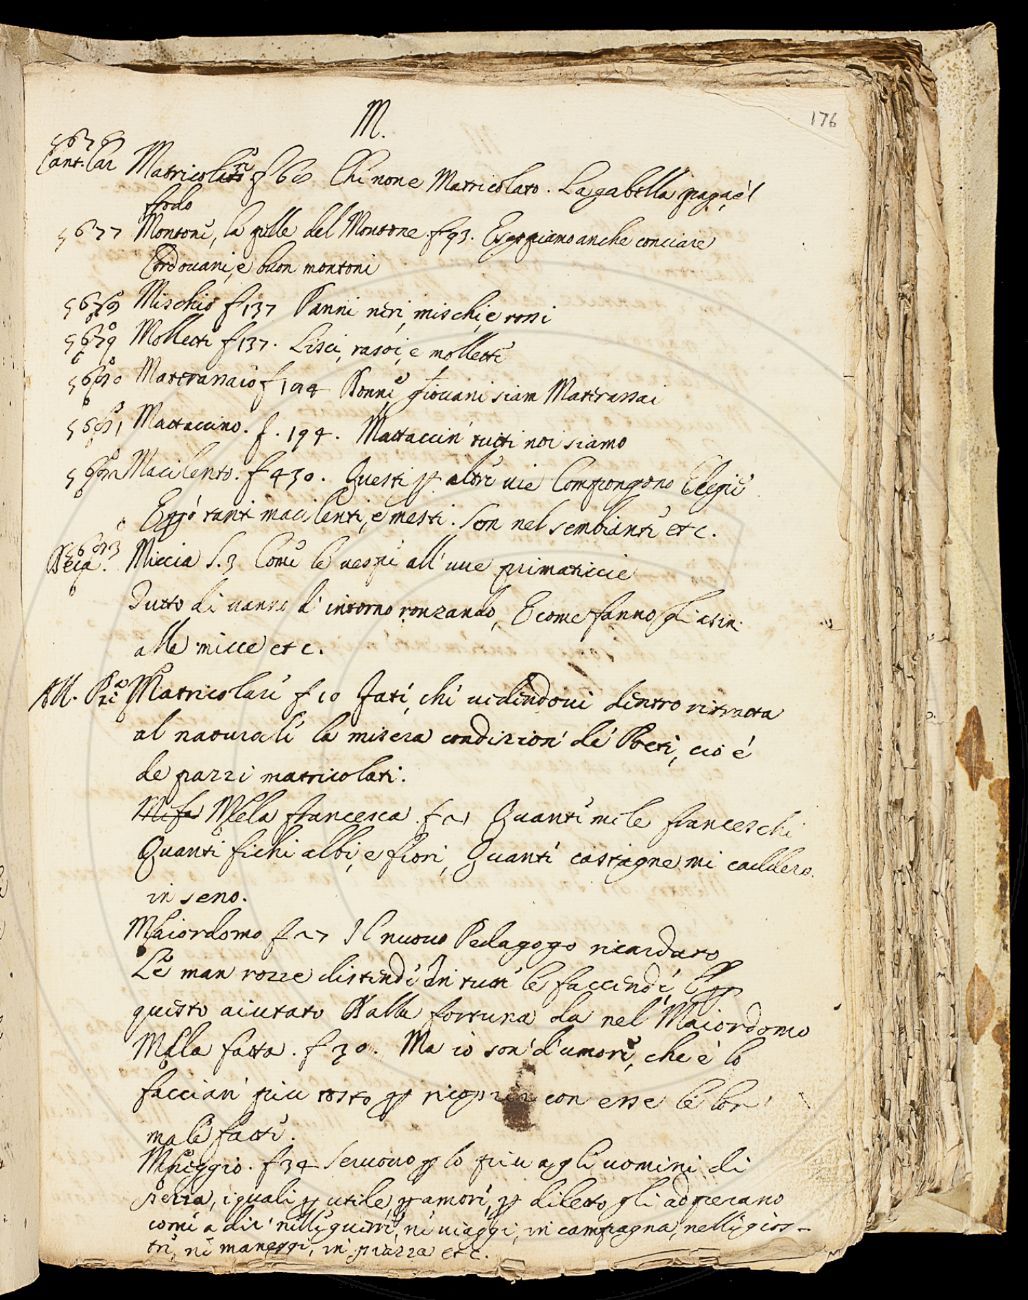 M.
176
5676
Cant. Car Matricolato f 60 Chi non e Matricolato. La gabella paga, e 'l
frodo
5677 Montoni, la pelle del Montone. f 93. E sappiamo anche conciare
Cordouani, e buon montoni
5678 Mischio f 137 Panni neri, mischi, e rossi
5679 Molletti f 137. Lisci, rasoi, e molletti
5680 Matterassaio f 194 Donne, Giouani siam Matterassai
5681 Mattaccino. f. 194. Mattaccin' tutti noi siamo
5682 Macilento. f 430. Questi p altre vie Compongono Elegie
E però tanti macilenti, e mesti. Son nel sembianti etc.
5683
Beca. Miccia S. 3 Come le vespe all' vue primaticcie
Tutto di vanno d' intorno ronzando, E come fanno gli asin
alle micce etc.
All. Matricolare f 10 Fate, che vedendovi dentro ritratta
al naturale la misera condizion' de' Poeti, cio è
de pazzi matricolati.
Mela francesca. f 21 Quante mele francesche
Quanti fichi albi, e fiori, Quante castagne mi caddero
in seno.
Maiordomo f 27 Il nuouo Pedagogo ricardato
Le man rozze distende In tutte le faccende, E p
questo aiutato Dalla fortuna da nel Maiordomo
Mala fatta. f 30. Ma io son' d' umore, che e' lo
faccian' piu tosto p ricoprir con esse le lor
male fatte.
Maneggio. f 34 Seruono p lo piu agli uomini di
sierra, i quali p utile, p amore, p diletto gli adoperano
come a dir' nelle guerre, ne viaggi, in campagna, nelle gios-
tre, ne maneggi, in piazza etc.